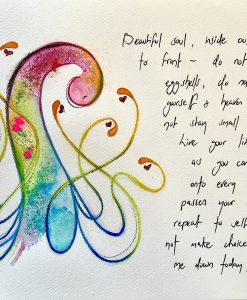 Beautiful soul, inside ou
to front ~ do not
eggshells, do no
yourself & heaven
not stay small
Live your lif
as you can
onto every
passes your
repeat to self
not make choice
me down today